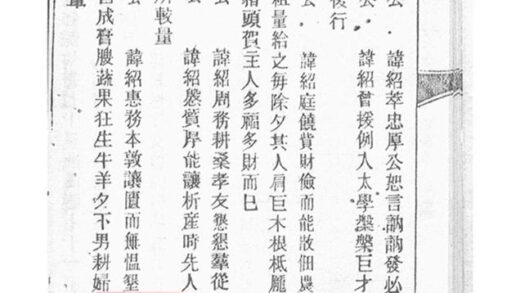 公 諱紹萃忠厚公恕言訥訥發必
公 諱紹曾援例入太學槃槃巨才
後行
公 諱紹庭饒貲財儉而能散佃農
租量給之每除夕其人肩巨木根柢龐
猪頭賀主人多福多財而已
公 諱紹周務耕桑孝友懇懇羣從
公 諱紹㷼質厚能讓析産時先人
所較量
諱紹惠務本敦讓匱而無慍墾
成畬膄蔬果在生牛羊夕下男耕婦